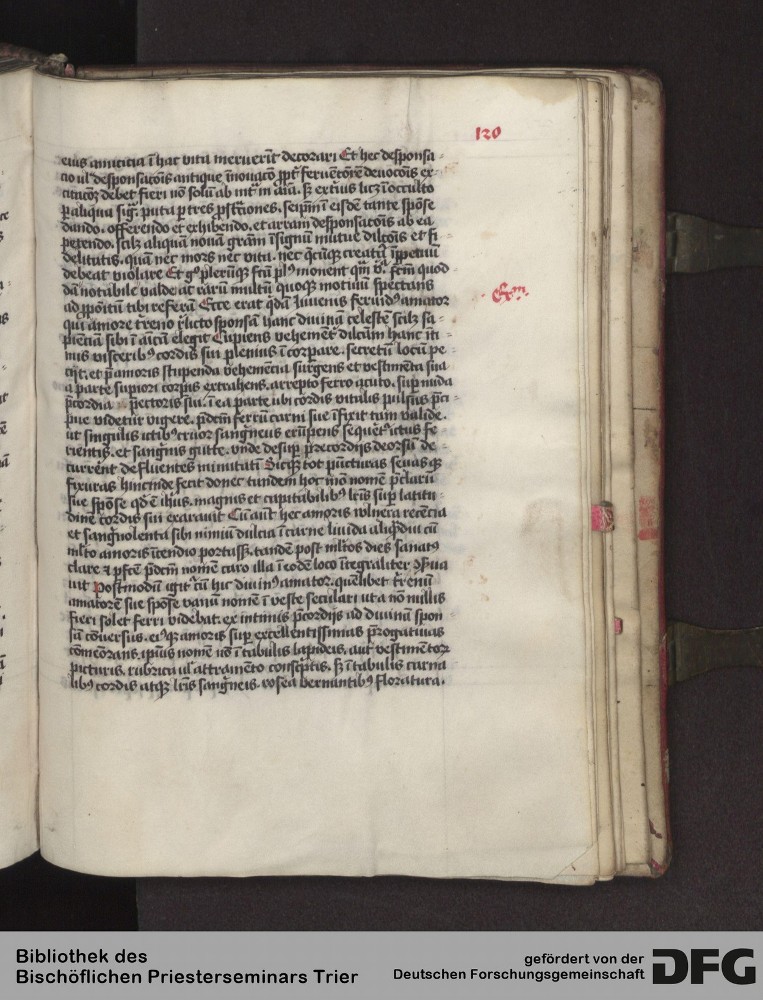 120
eius amicicia ī hac vita meruerīt decorari Et hec desponsa-
cio ul desponsacōis antique īnouacō ꝓpt feruētiorē deuocōis ex-
citacōꝫ debet fieri nō solū ab intᵃ in aīa. sꝫ exterius licꝫ ī occulto
ꝑ aliqua sigͣ. puta ꝑ tres ꝓstᵃciones. seipm̄ ī eisdē tante spōse
dando. offerendo et exhibendo. et arram desponsacōis ab ea
petendo. scilꝫ aliquā nouā gram̄ ī signū mutue dilcōis et fi-
delitatis. quā nec mors nec vita. nec qͥcūqꝫ creatᵃ īꝑpetuū
debeat violare Et gͦ pleriūqꝫ fcā plꝰ monent qͣm vᵇa fcm̄ quod
dā notabile valde ac rarū multū quoqꝫ motiuū spectans
ad ꝓpoitū tibi referā Ecce erat qͥdā Juuenis feruidꝰ amator
Exᵐ.
qui amore tᵉreno rͤlicto sponsā hanc diuinā celestē scilꝫ sa-
piēciā sibi ī aīcā elegit Cupiens vehemētͬ dilcām hanc īti-
mis visceribꝰ cordis sui plenius īcorpare. secretū locū pe-
cijt. et p̄ amoris stupenda vehemēcia surgens et vestimēta sua
a parte supiori corpis extrahens. arrepto ferro acuto. sup nuda
p̄cordia pectoris sui. ī ea parte ubi cordis vitalis pulsus p̄ci-
pue videtur vigere. p̄dcm̄ ferrū carni sue īfixit tam valide.
ut singulis ictibꝰ cruor sanguineus erūpens seqͬetͬ ictus fe-
rientis. et sangͥnis gutte. vnde desup p̄cordijs deorsū de-
currēnt defluentes minutatī Sicqꝫ tot pūcturas seuasqꝫ
fixuras hincinde fecit donec tandem hoc mō nomē p̄clarū
sue spōse qd ē ihus. magnis et capitalibꝰ lrīs sup latitu-
dinē cordis sui exarauit Cū aūt hec amoris wlnera recēcia
et sangͥnolenta sibi nimiū dulcia ī carne liuida aliqͣdiu cū
mlto amoris īcendio portassꝫ. tandē post mltos dies sanatꝰ
clare ⁊ pfcē p̄dcm̄ nomē caro illa ī eodē loco ītegraliter 9ẜua
uit Postmodū igitͬ cū hic diuinꝰ amator. quēlibet tͬrenū
amatorē sue spōse vanū nomē ī veste seculari ut a nō nullis
fieri solet ferri videbat. ex intimis p̄cordijs ad diuinā spon-
sā cōuersus. eiꝰqꝫ amoris sup excellentissimas p̄rogatiuas
cōmēorans. ipius nomē nō ī tabulis lapideis. aut vestimētoꝝ
picturis. rubrica ul attramēto conscᵖtis. sꝫ ī tabulis carna
libꝰ cordis atqꝫ lrīs sangͥneis. rosea vernantibꝰ floratura.
Bibliothek des
Bischöflichen Priesterseminars Trier
gefördert von der
Deutschen Forschungsgemeinschaft
DFG